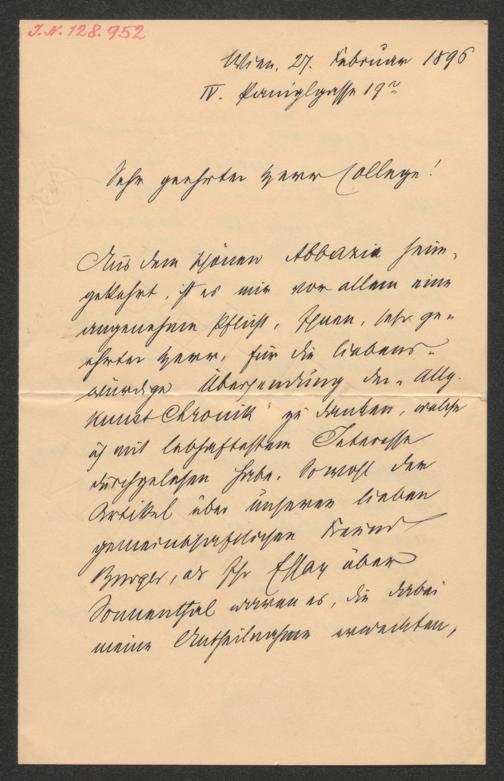 J.N. 128.952
Wien, 27. Februar 1896
IV. Paniglgasse 19
Sehr geehrter Herr College!
Aus dem schönen Abbazia heim-
gekehrt, ist es mir vor allem eine
angenehme Pflicht, Ihnen, sehr ge-
ehrter Herr, für die liebens-
würdige Übersendung der „Allg.
Kunst Chronik" zu danken, welche
ich mit lebhaftestem Interesse
durchgelesen habe. Sowohl der
Artikel über unseren lieben
gemeinschaftlichen Freund
als Ihr Essay über
Sonnenthal waren es, die dabei
meine Antheilnahme erweckten,